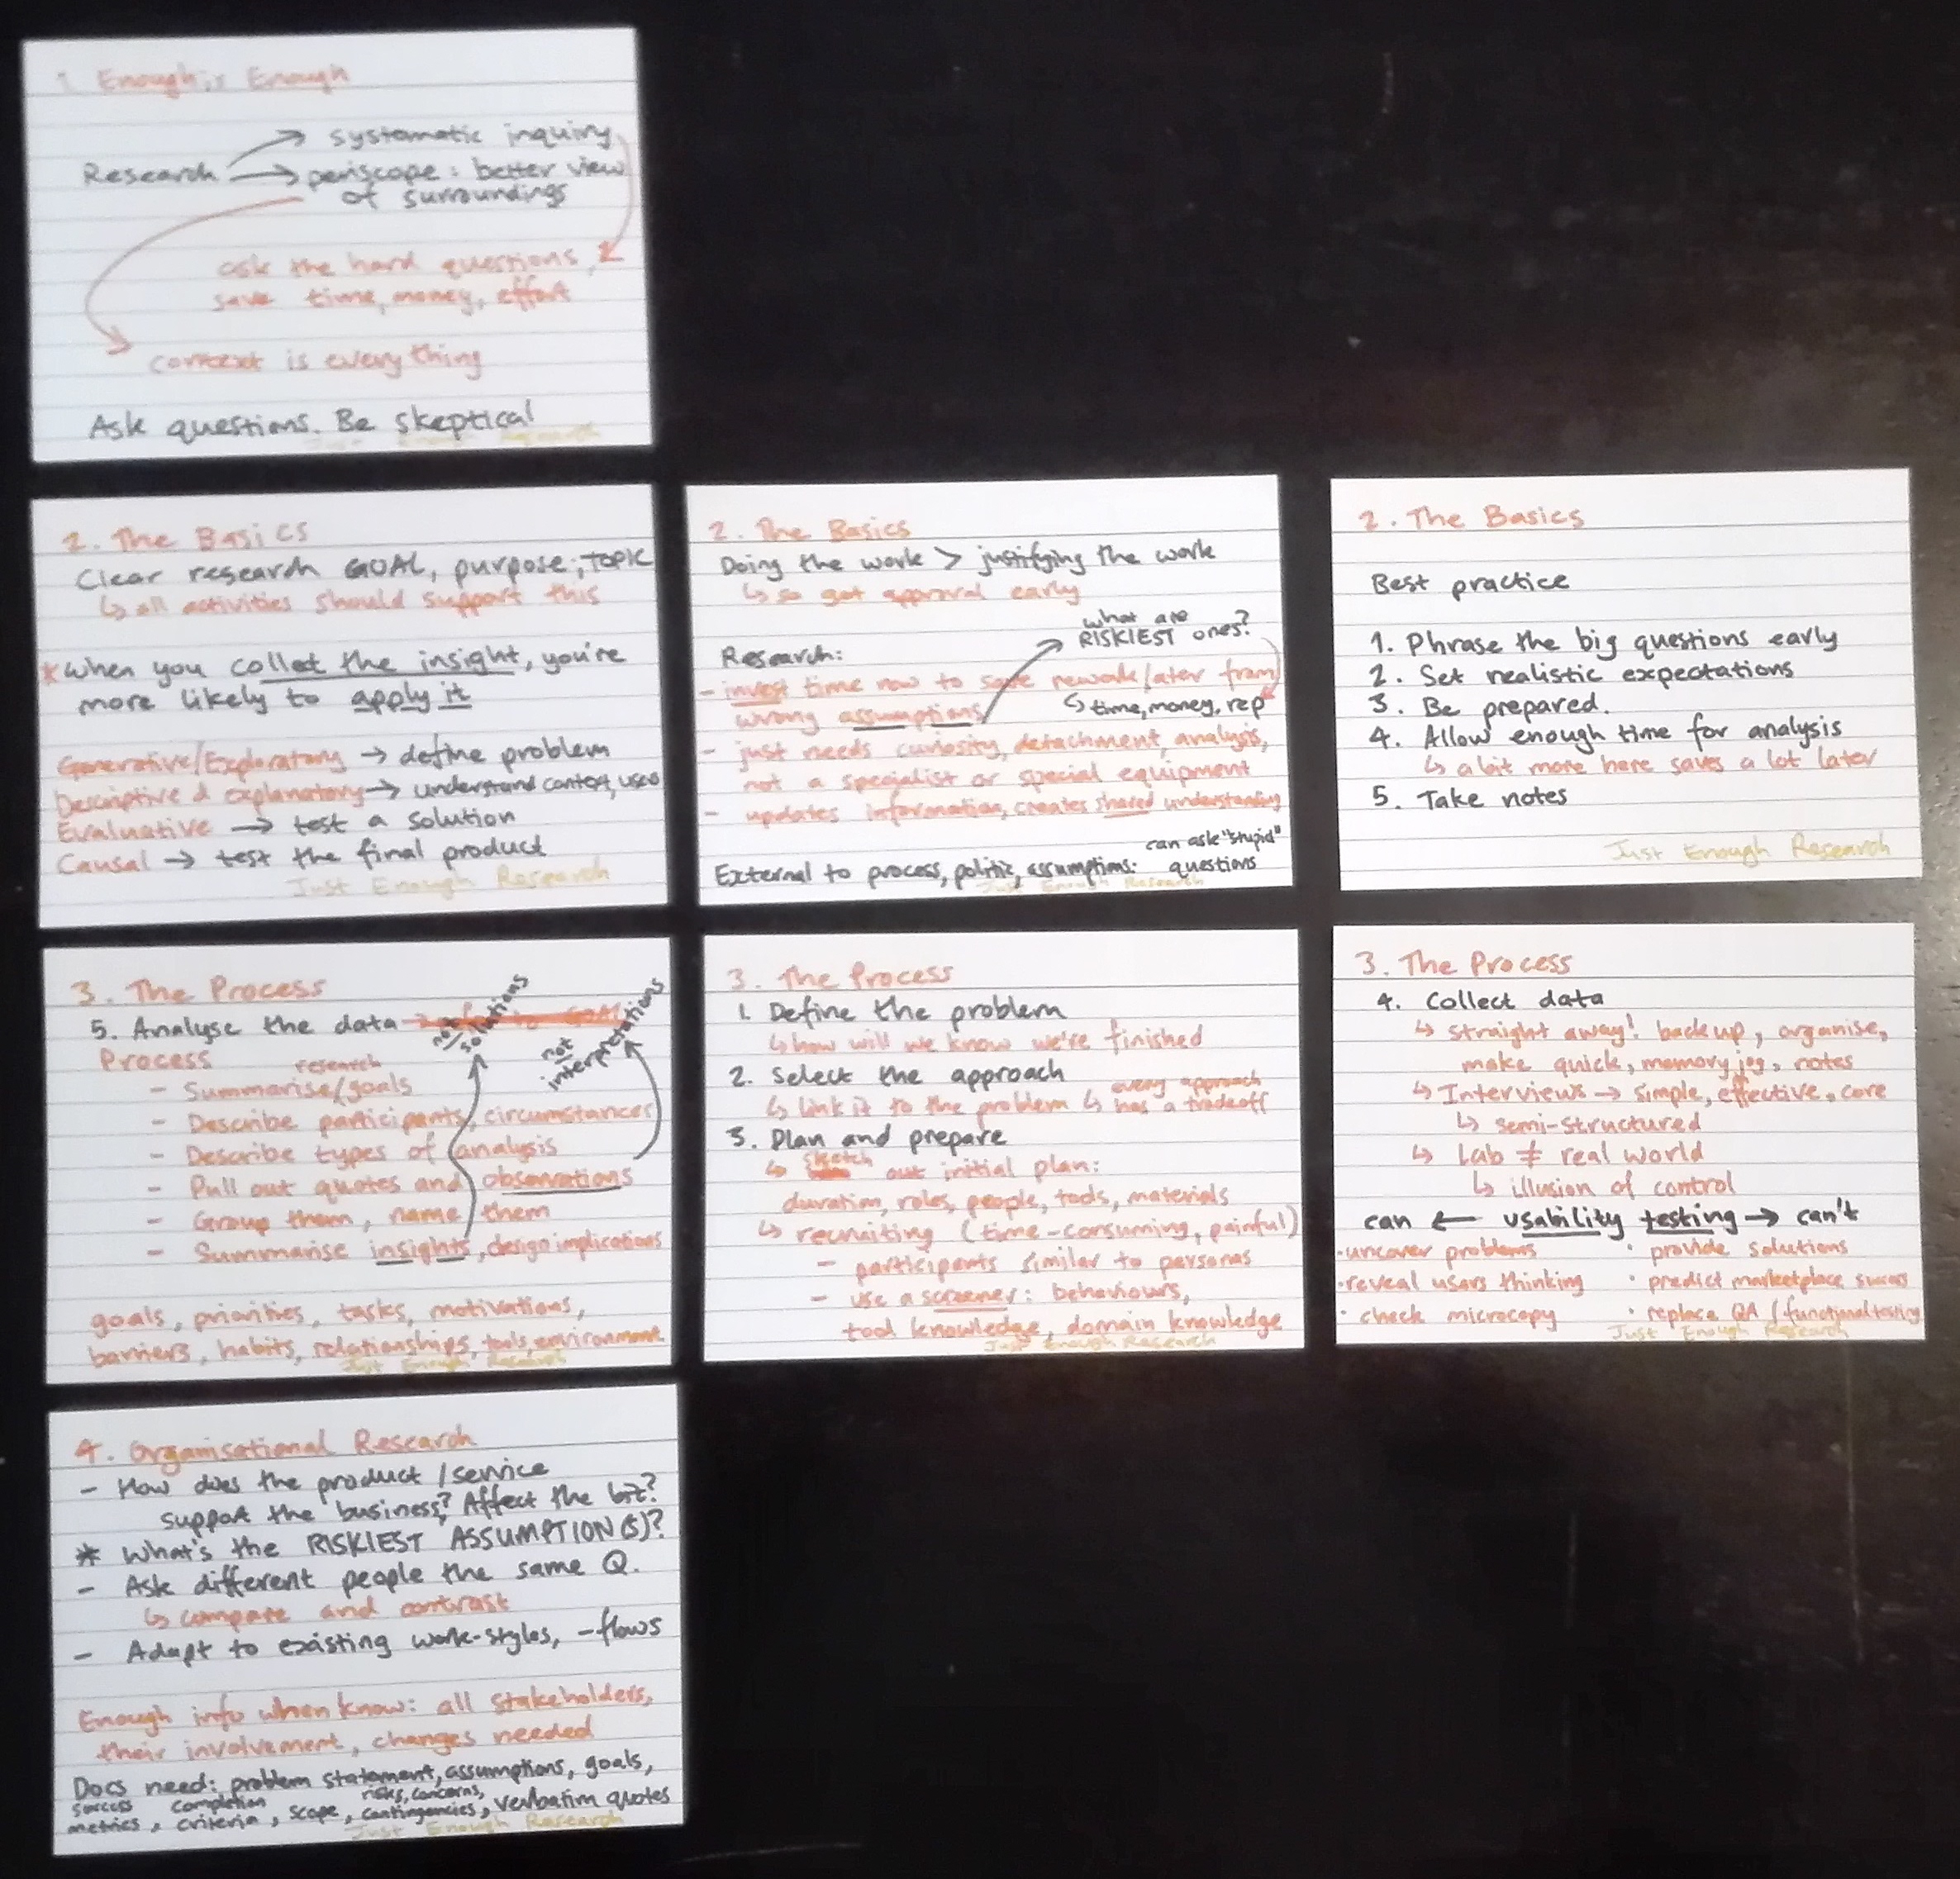 1. Enough is Enough
systematic inquiry
Research periscope: better view
of surroundings
ask the hard questions,
save time, money, effort
context is everything
Ask questions. Be skeptical
Just Enough Research
2. The Basics
Clear research GOAL, purpose, TOPIC
↳ all activities should support this
* When you collect the insight, you're
more likely to apply it
Generative/Exploratory → define problem
Descriptive & explanatory → understand context, users
Evaluative → test a solution
Causal → test the final product
Just Enough Research
2. The Basics
Doing the work > justifying the work
↳ so get approval early
what are
RISKIEST ones?
Research:
- invest time now to save rework later from
wrong assumptions ↳ time, money, rep
- just needs curiosity, detachment, analysis,
not a specialist or special equipment
- updates information, creates shared understanding
can ask "stupid"
External to process, politic, assumptions: questions
Just Enough Research
2. The Basics
Best practice
1. Phrase the big questions early
2. Set realistic expectations
3. Be prepared.
4. Allow enough time for analysis
↳ a bit more here saves a lot later
5. Take notes
Just Enough Research
3. The Process
5. Analyse the data
not solutions
not interpretations
Process
research
- Summarise/goals
- Describe participants, circumstances
- Describe types of analysis
- Pull out quotes and observations
- Group them, name them
- Summarise insights, design implications
goals, priorities, tasks, motivations,
barriers, habits, relationships, tools, environment
Just Enough Research
3. The Process
1. Define the problem
↳ how will we know we're finished
2. Select the approach
↳ link it to the problem ↳ every approach has a tradeoff
3. Plan and prepare
↳ sketch out initial plan:
duration, roles, people, tools, materials
↳ recruiting (time-consuming, painful)
- participants similar to personas
- use a screener: behaviours,
tool knowledge, domain knowledge
Just Enough Research
3. The Process
4. Collect data
↳ straight away! back up, organise,
make quick, memory jog, notes
↳ Interviews → simple, effective, core
↳ semi-structured
↳ Lab ≠ real world
↳ illusion of control
can ← usability testing → can't
· uncover problems · provide solutions
· reveal users thinking · predict marketplace success
· check microcopy · replace QA / functional testing
Just Enough Research
4. Organisational Research
- How does the product / service
support the business? Affect the biz?
* What's the RISKIEST ASSUMPTION(S)?
- Ask different people the same Q.
↳ compare and contrast
- Adapt to existing work-styles, -flows
Enough info when know: all stakeholders,
their involvement, changes needed
Docs need: problem statement, assumptions, goals,
success metrics, completion criteria, scope, risks, concerns, contingencies, verbatim quotes
Just Enough Research